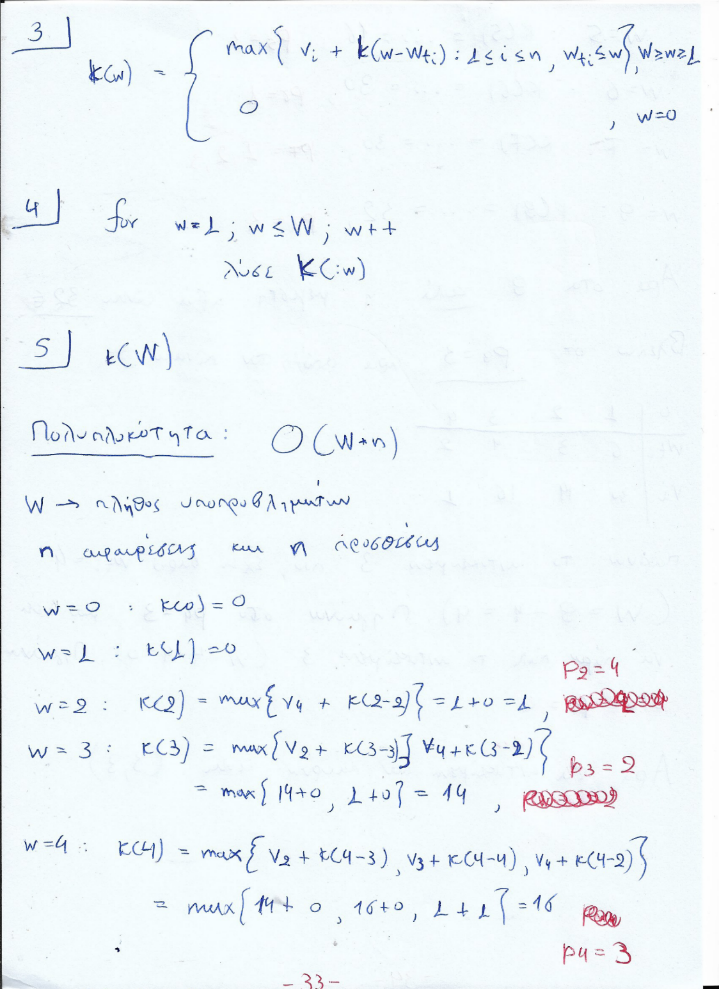 3
K(w) = { max{ vi + K(w-wti) : 1≤i≤n , wti≤w}, W≥w≥1
0 , w=0
4
for w=1 ; w≤W ; w++
λύσε K(w)
5 K(W)
Πολυπλοκότητα : O(W*n)
W → πλήθος υποπροβλημάτων
n αφαιρέσεις και n προσθέσεις
w=0 : K(0)=0
w=1 : K(1)=0
w=2 : K(2) = max{V4 + K(2-2)} = 1+0 = 1 , P2=4
w=3 : K(3) = max{V2 + K(3-3), V4+K(3-2)}
= max{14+0, 1+0} = 14 , P3=2
w=4 : K(4) = max{V2+K(4-3), V3+K(4-4), V4+K(4-2)}
= max{14+0, 16+0, 1+1} = 16
P4=3
-33-